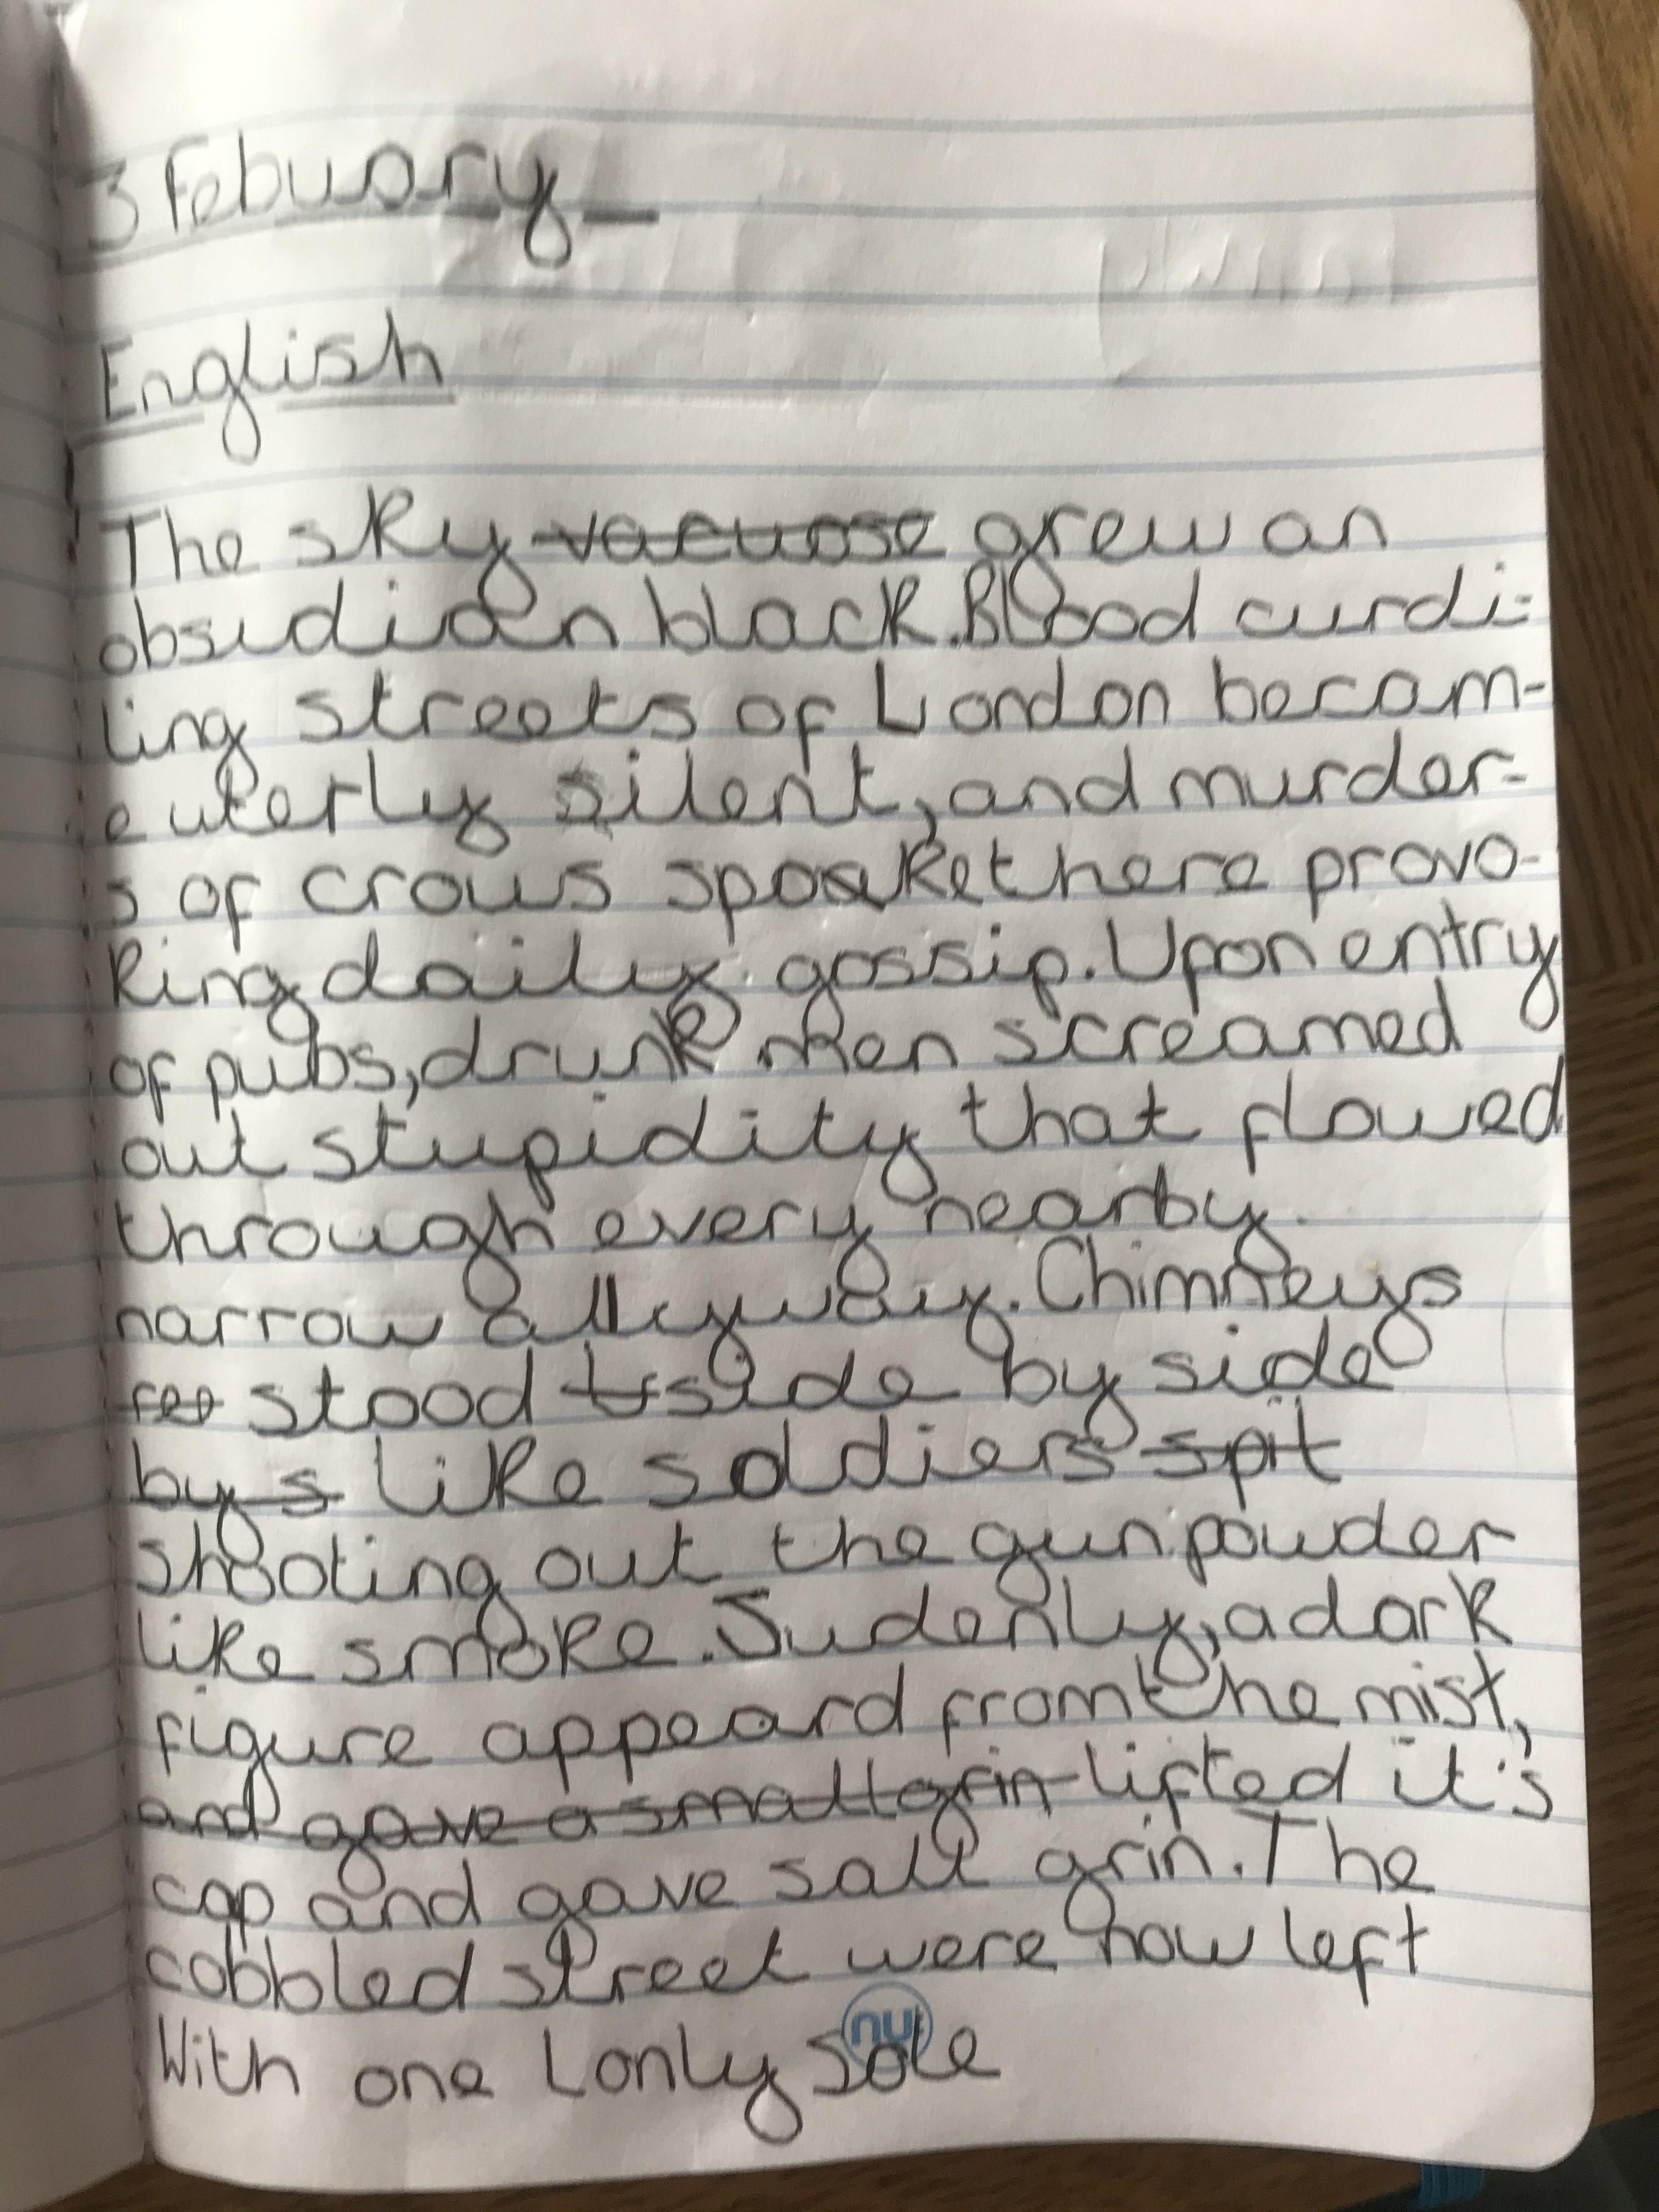 3 Febuary
English
The sky vacuose grew an
obsidian black. Blood curdi-
ling streets of London becam-
e uterly silent, and murder-
s of crows spoake there provo-
king daily gossip. Upon entry
of pubs, drunk men screamed
out stupidity that flowed
through every nearby
narrow alleyway. Chimneys
stood side by side
by s like soldiers spit
shooting out the gunpowder
like smoke. Sudenly, a dark
figure appeard from the mist,
and gave a small grin lifted it's
cap and gave sall grin. The
cobbled street were now left
With one Lonly Sole
nu